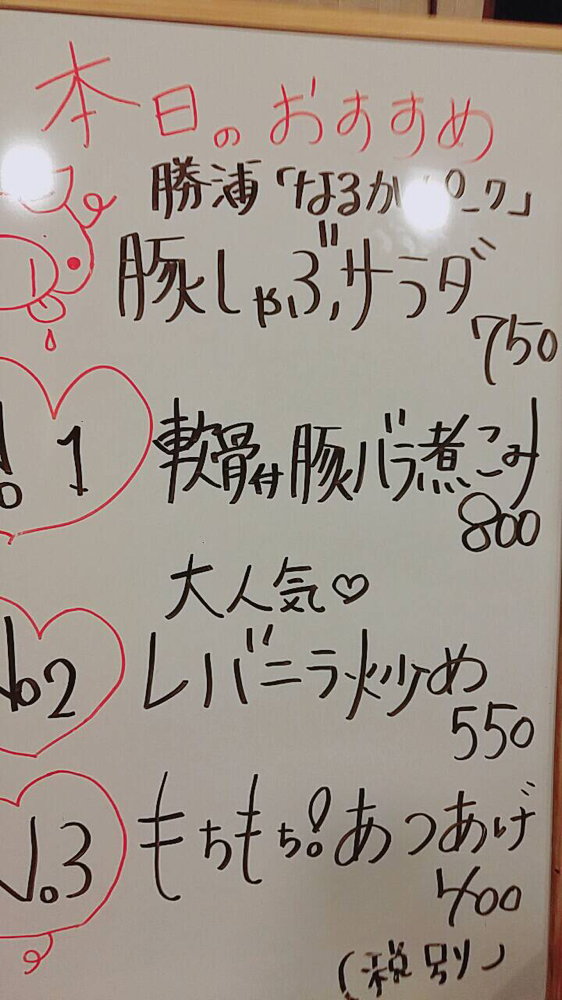 本日のおすすめ
勝浦「なるか
豚しゃぶサラダ
750
No.1 軟骨付豚バラ煮こみ
800
大人気♡
No.2 レバニラ炒め
550
No.3 もちもち!あつあげ
400
(税別)